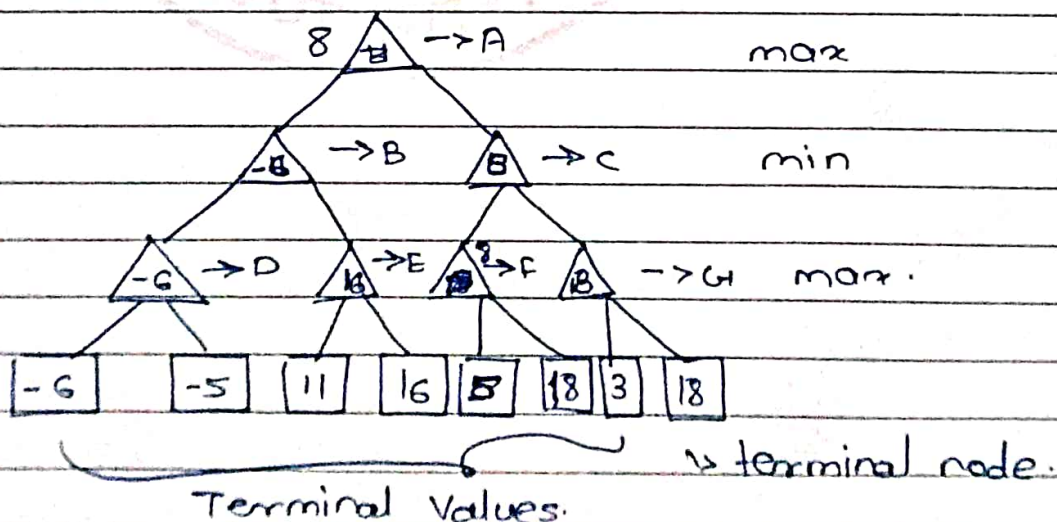 8 → A max
→ B → C min
-6 → D 16 → E 8 → F 18 → G max.
-6 -5 11 16 18 3 18
→ terminal node.
Terminal Values.